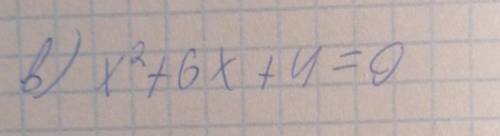 в) x²+6x+4=0